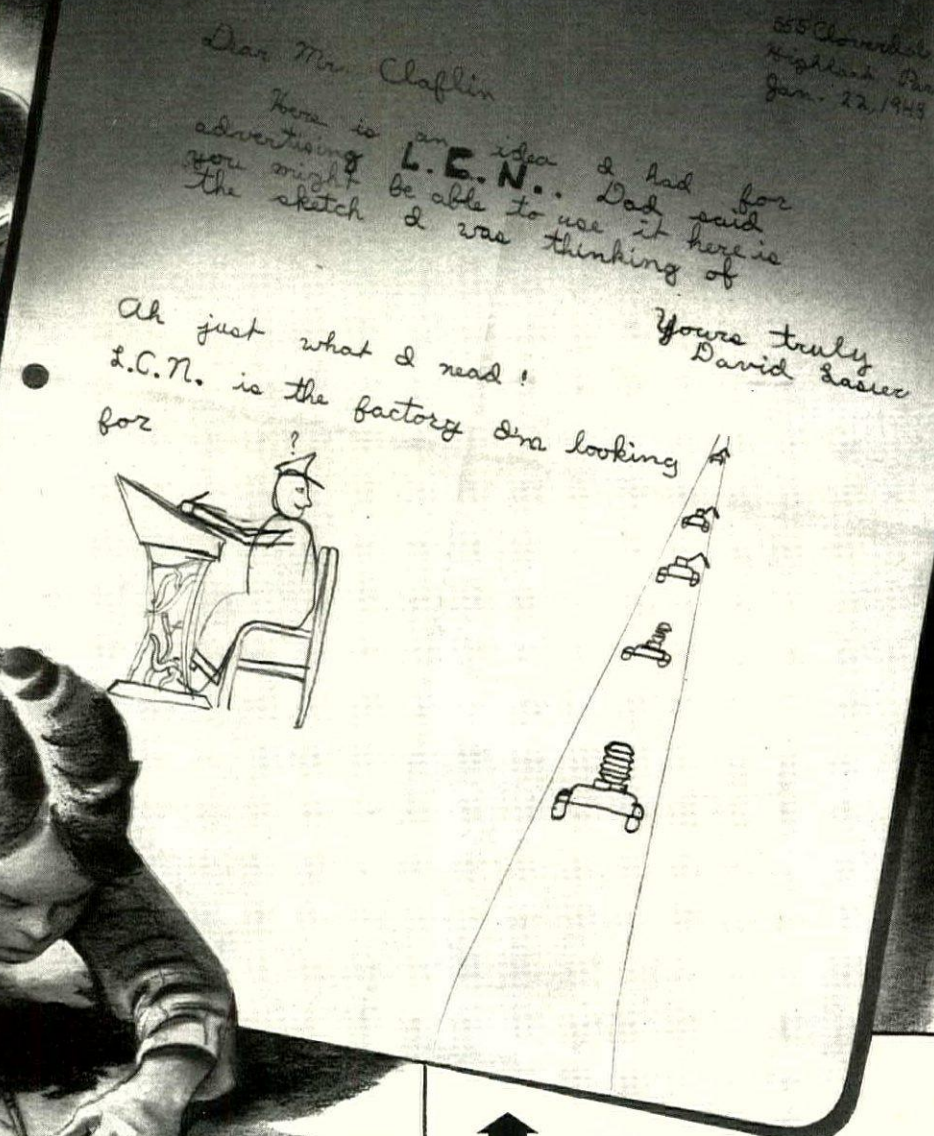 555 Cloverdale
Highland Par
Jan. 22, 1943
Dear Mr. Claflin
Here is an idea I had for
advertising L.C.N.. Dad said
you might be able to use it here is
the sketch I was thinking of
Yours truly
David Lasier
Ah just what I nead!
L.C.N. is the factory I'm looking
for
?